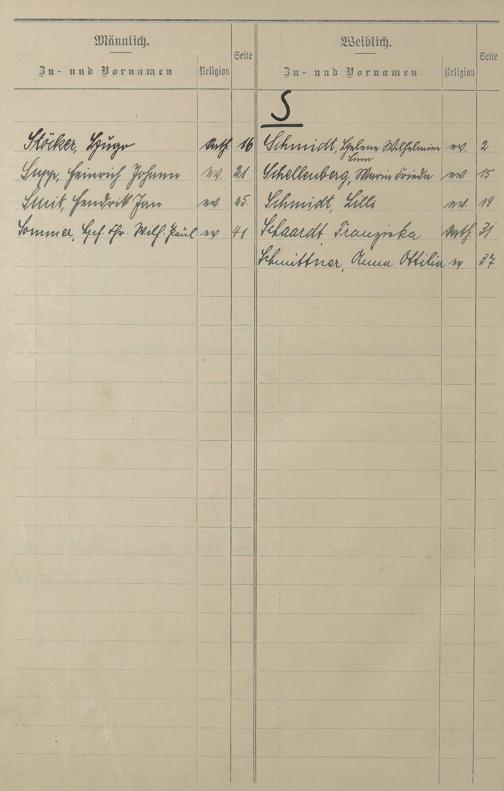 Männlich.
Zu- und Vornamen Religion Seite
Weiblich.
Zu- und Vornamen Religion Seite
S
Stöcker, Hugo kath 16
Supp, Heinrich Johann ev. 21
Smit, Hendrik Jan ev 25.
Sommer, Chr. Wilh. Paul ev 41
Schmidt, Helene Wilhelmine ev. 2
Schellenberg, Marie Frieda ev 15
Schmidt, Lilli ev 19
Schaardt, Franziska kath 31
Schmittner, Anna Ottilia ev 37